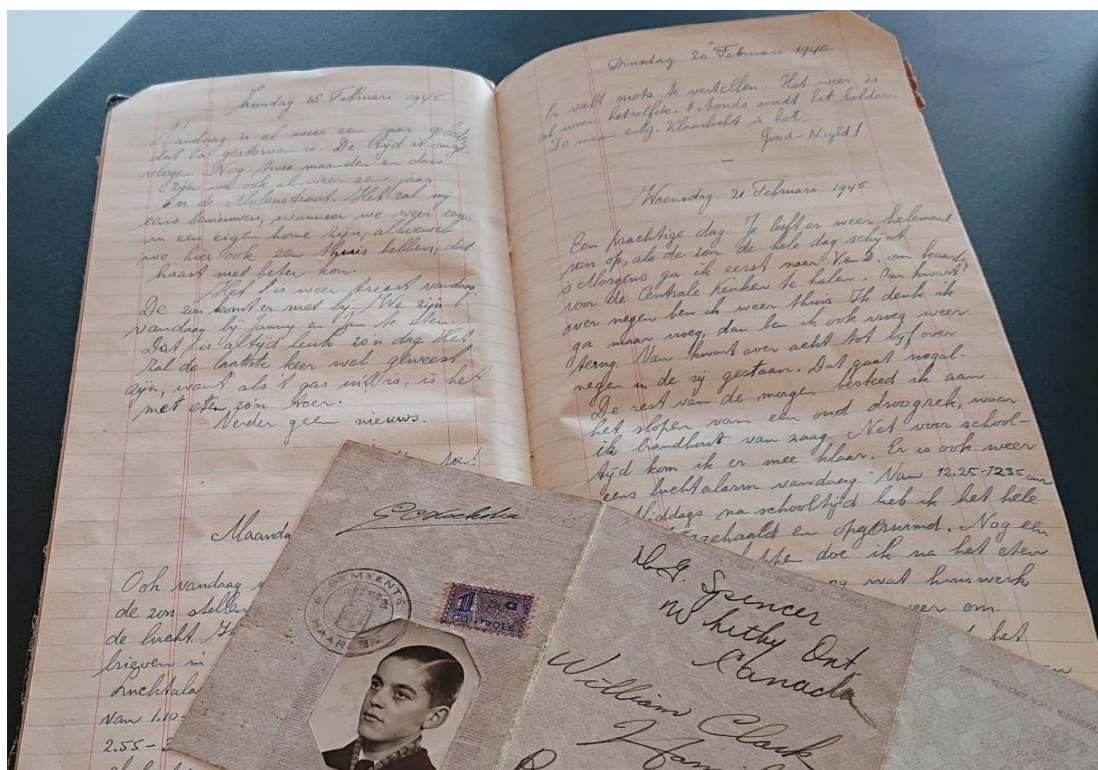 Zondag 18 Februari 1945.
Vandaag is al weer een jaar geleden
dat Pa gestorven is. De tijd is omge-
vlogen. Nog twee maanden en dan
zijn we ook al weer een jaar
in de Molenstraat. Het zal mij
eens benieuwen, wanneer we weer eens
in een eigen home zijn, alhoewel
we hier ook een thuis hebben, dat
haast niet beter kon.
Het is weer vandaag.
De zon komt er niet bij. We zijn
vandaag by Fanny en Jan te eten.
Dat is altijd leuk zo'n dag. Het
zal de laatste keer wel geweest
zijn, want als 't gas uit is, is het
met eten zo'n toer.
Verder geen nieuws.
Maanda
Ook vandaag
de zon stellen
de lucht.
brieven in
Luchtala
Van 1.10-
2.55-
Dinsdag 20 Februari 1945.
Er valt niets te vertellen. Het weer is
al weer hetzelfde. 's Avonds wordt het helder.
Klaarlicht is het.
Good-Night!
—
Woensdag 21 Februari 1945
Een prachtige dag. Je leeft er weer helemaal
van op, als de zon de hele dag schijnt.
's Morgens ga ik eerst naar om kaarten
voor de Centrale Keuken te halen. Om kwart
over negen ben ik weer thuis. Ik denk ik
ga maar vroeg, dan ben ik ook vroeg weer
terug. Van kwart over acht tot vijf over
negen in de rij gestaan. Dat gaat nogal.
De rest van de morgen besteed ik aan
het slopen van een oud droogrek, waar
ik brandhout van zaag. Net voor school-
tijd kom ik er mee klaar. Er is ook weer
eens luchtalarm vandaag. Van 12.25-12.35 uur
Middags na schooltijd heb ik het hele
gehaald en opgeruimd. Nog een
doe ik na het eten
nog wat huiswerk
weer om.
het
GEMEENTE
HAAR
1
D.G. Spencer
Whitby Ont
Canada
William Clark
Ham
DEPARTEMENT VAN BINNE